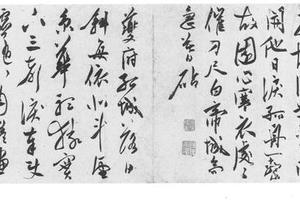 開他日淚孤舟一繫
故園心寒衣處〻
催刀尺白帝城高
急暮砧
夔府孤城落日
斜每依北斗望
京華聽猿實
下三聲淚奉使